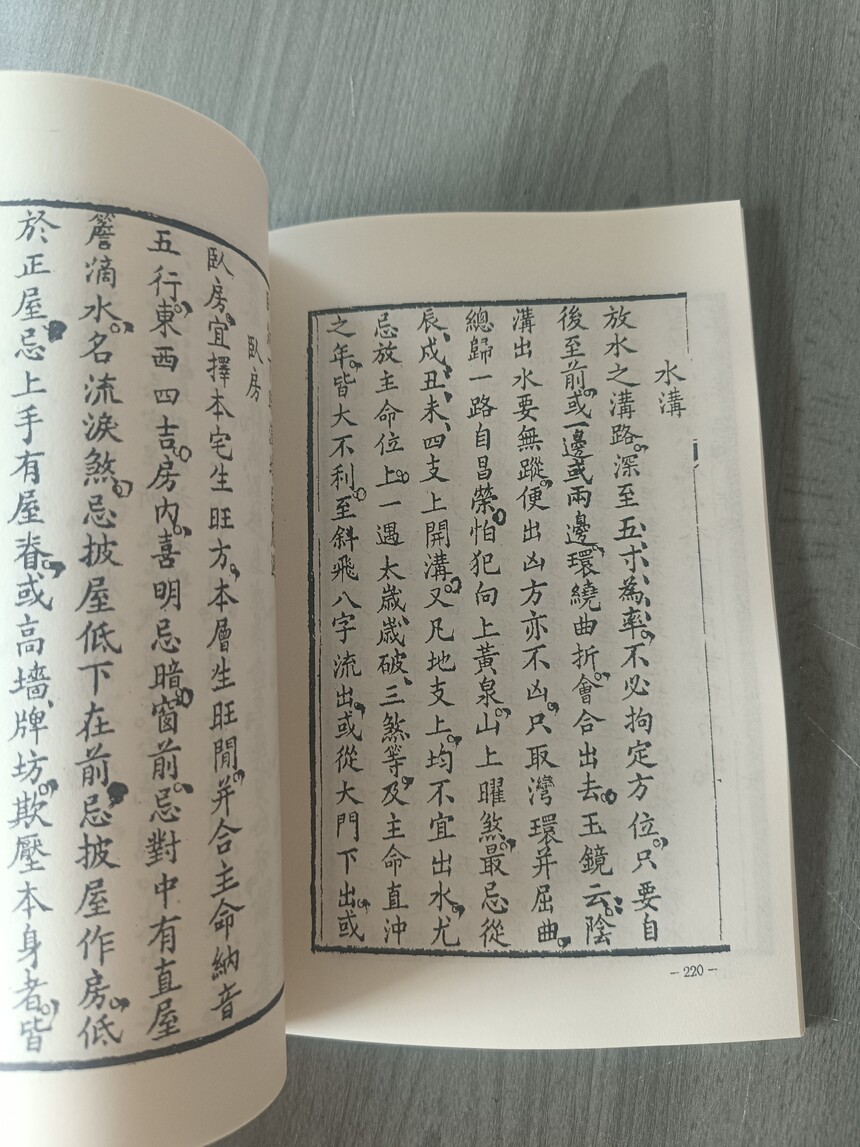 水溝
放水之溝路，深至五、寸、為、率，不必拘定方位，只要自
後至前，或一邊或兩邊，環繞曲折，會合出去。玉鏡云：陰
溝出水要無蹤，便出凶方亦不凶，只取灣環并屈曲，
總歸一路自昌榮。怕犯向上黃泉，山上曜煞，最忌從
辰、戍、丑、未、四支上開溝。又凡地支上，均不宜出水，尤
忌放主命位上。一遇太歲、歲破、三煞等，及主命直沖
之年，皆大不利。至斜飛八字流出，或從大門下出，或
-220-
臥房
臥房，宜擇本宅生旺方，本層生旺間，并合主命納音
五行，東西四吉。房內，喜明忌暗。窗前，忌對中有直屋
簷滴水，名流淚煞。忌披屋低下在前，忌披屋作房，低
於正屋，忌上手有屋脊，或高墻、牌坊，欺壓本身者，皆